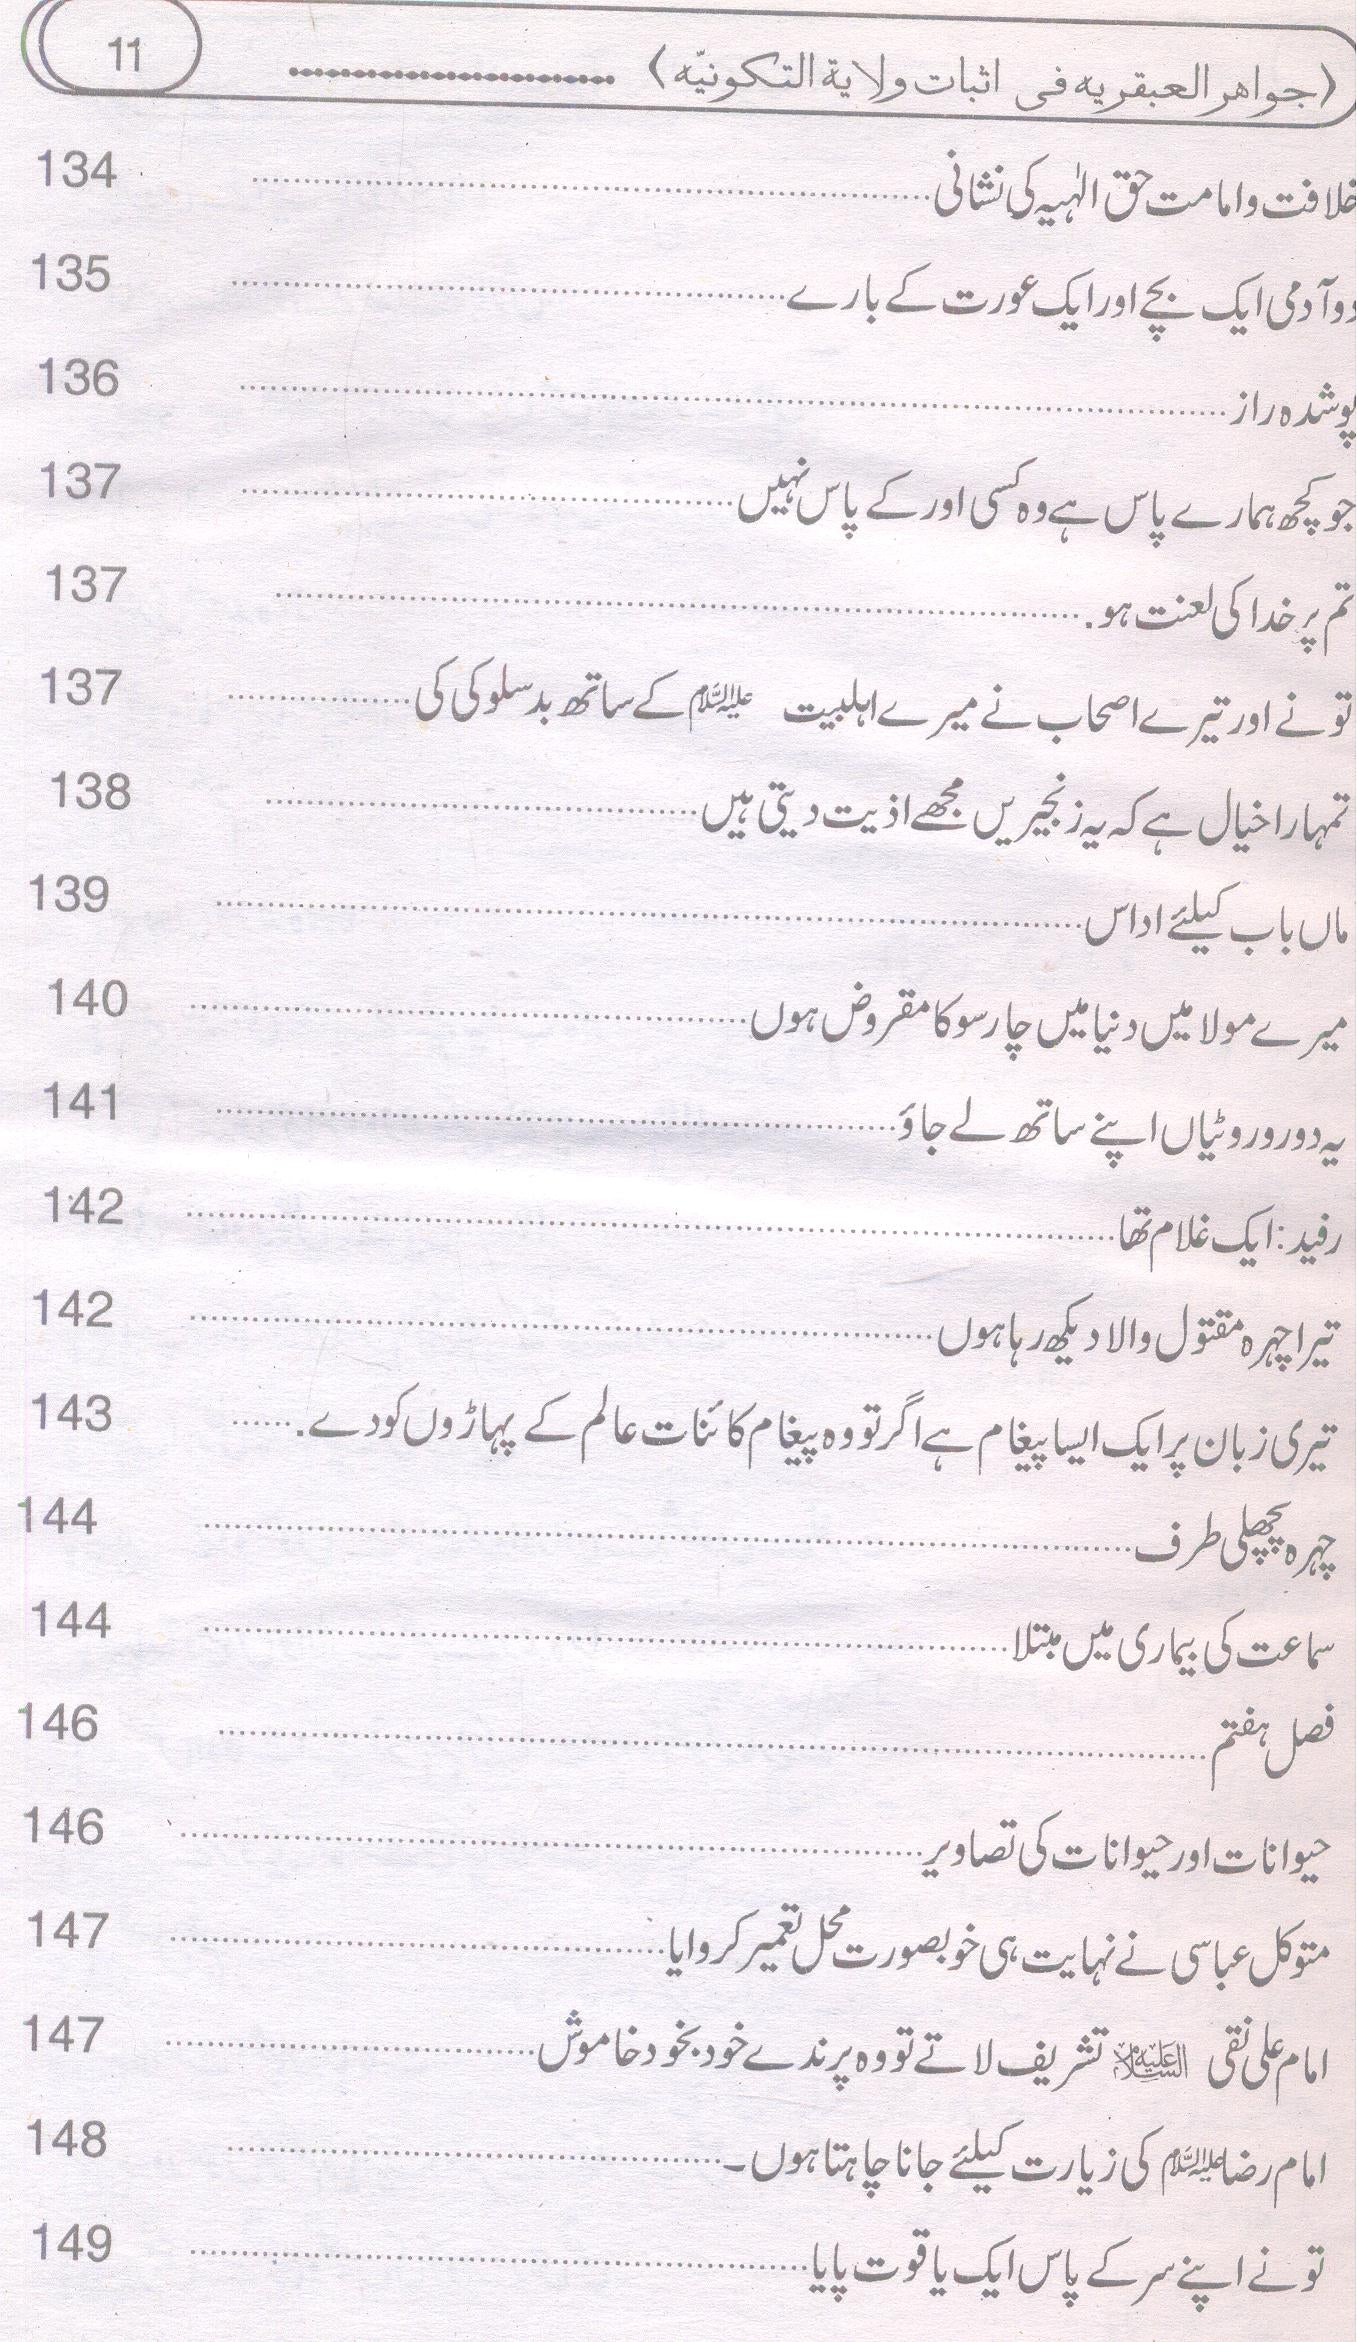 (جواهر العبقریه فی اثبات ولایة التکونیّه) ........................ 11
خلافت و امامت حق الٰہیہ کی نشانی ........................ 134
دو آدمی ایک بچے اور ایک عورت کے بارے ........................ 135
پوشدہ راز ........................ 136
جو کچھ ہمارے پاس ہے وہ کسی اور کے پاس نہیں ........................ 137
تم پر خدا کی لعنت ہو . ........................ 137
تو نے اور تیرے اصحاب نے میرے اہلبیت علیہ السلام کے ساتھ بدسلوکی کی ........................ 137
تمہارا خیال ہے کہ یہ زنجیریں مجھے اذیت دیتی ہیں ........................ 138
ماں باپ کیلئے اداس ........................ 139
میرے مولا میں دنیا میں چار سو کا مقروض ہوں ........................ 140
یہ دو رو روٹیاں اپنے ساتھ لے جاؤ ........................ 141
رفید : ایک غلام تھا ........................ 142
تیرا چہرہ مقتول والا دیکھ رہا ہوں ........................ 142
تیری زبان پر ایک ایسا پیغام ہے اگر تو وہ پیغام کائنات عالم کے پہاڑوں کو دے . ...... 143
چہرہ پچھلی طرف ........................ 144
سماعت کی بیماری میں مبتلا ........................ 144
فصل ہفتم ........................ 146
حیوانات اور حیوانات کی تصاویر ........................ 146
متوکل عباسی نے نہایت ہی خوبصورت محل تعمیر کروایا ........................ 147
امام علی نقی علیہ السلام تشریف لاتے تو وہ پرندے خود بخود خاموش ........................ 147
امام رضا علیہ السلام کی زیارت کیلئے جانا چاہتا ہوں۔ ........................ 148
تو نے اپنے سر کے پاس ایک یاقوت پایا ........................ 149